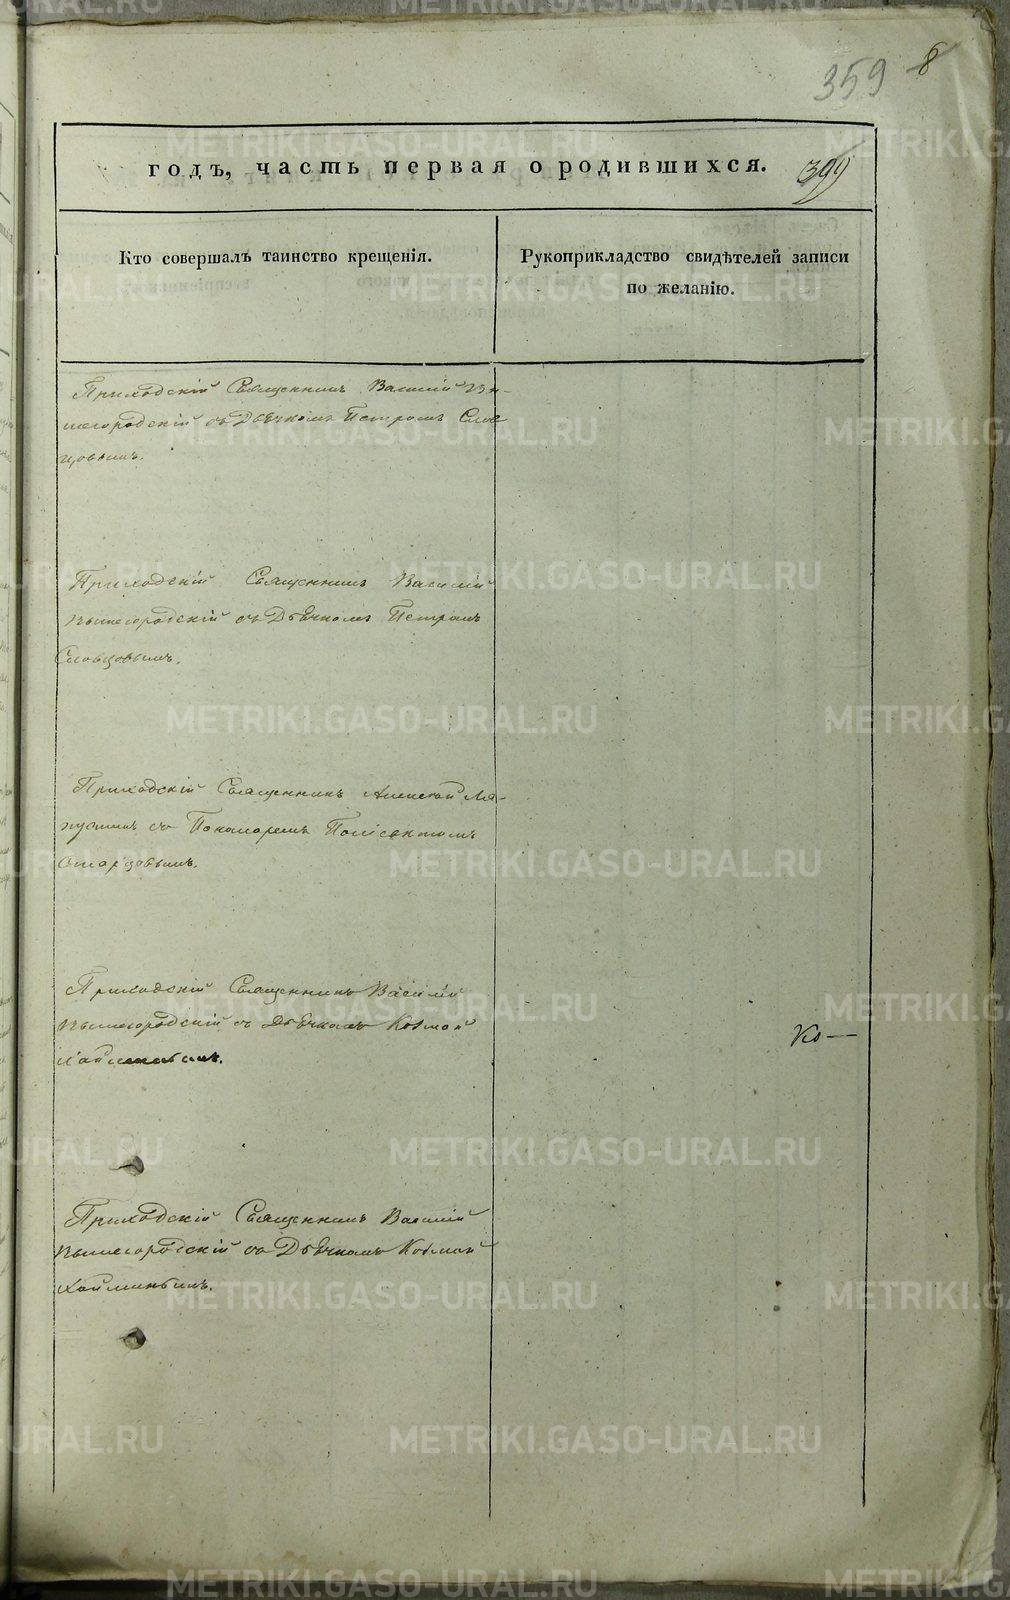 359 8
годъ, часть первая о родившихся. 399
Кто совершалъ таинство крещенія.
Рукоприкладство свидѣтелей записи
по желанію.
Приходскій Священникъ Василій Вы-
шегородскій съ Дьячкомъ Петромъ Слов
цовымъ.
Приходскій Священникъ Василій
Вышегородскій съ Дьячкомъ Петромъ
Словцовымъ.
Приходскій Священникъ Алексѣй Ла-
съ Пономаремъ
Приходскій Священникъ Василій
Вышегородскій съ Дьячкомъ Козмой
Ко—
Приходскій Священникъ Василій
Вышегородскій съ Дьячкомъ Козмой
METRIKI.GASO-URAL.RU